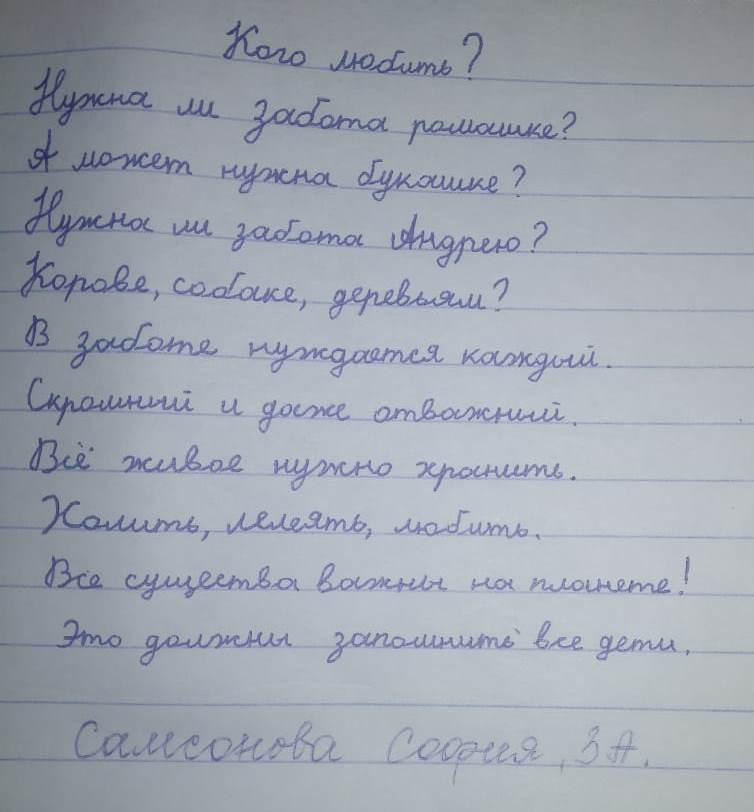 Кого любить?
Нужна ли забота ромашке?
А может нужна букашке?
Нужна ли забота Андрею?
Корове, собаке, деревьям?
В заботе нуждается каждый.
Скромный и даже отважный.
Всё живое нужно хранить.
Холить, лелеять, любить.
Все существа важны на планете!
Это должны запомнить все дети.
Самсонова София, 3 А.